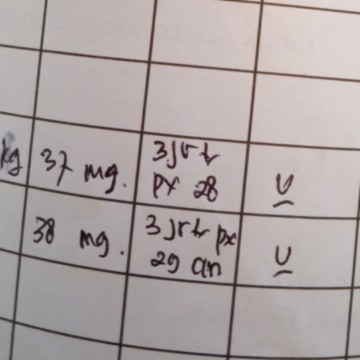 kg 37 mg. 3 jrt
px 28 U
38 mg. 3 jrt px
29 an U